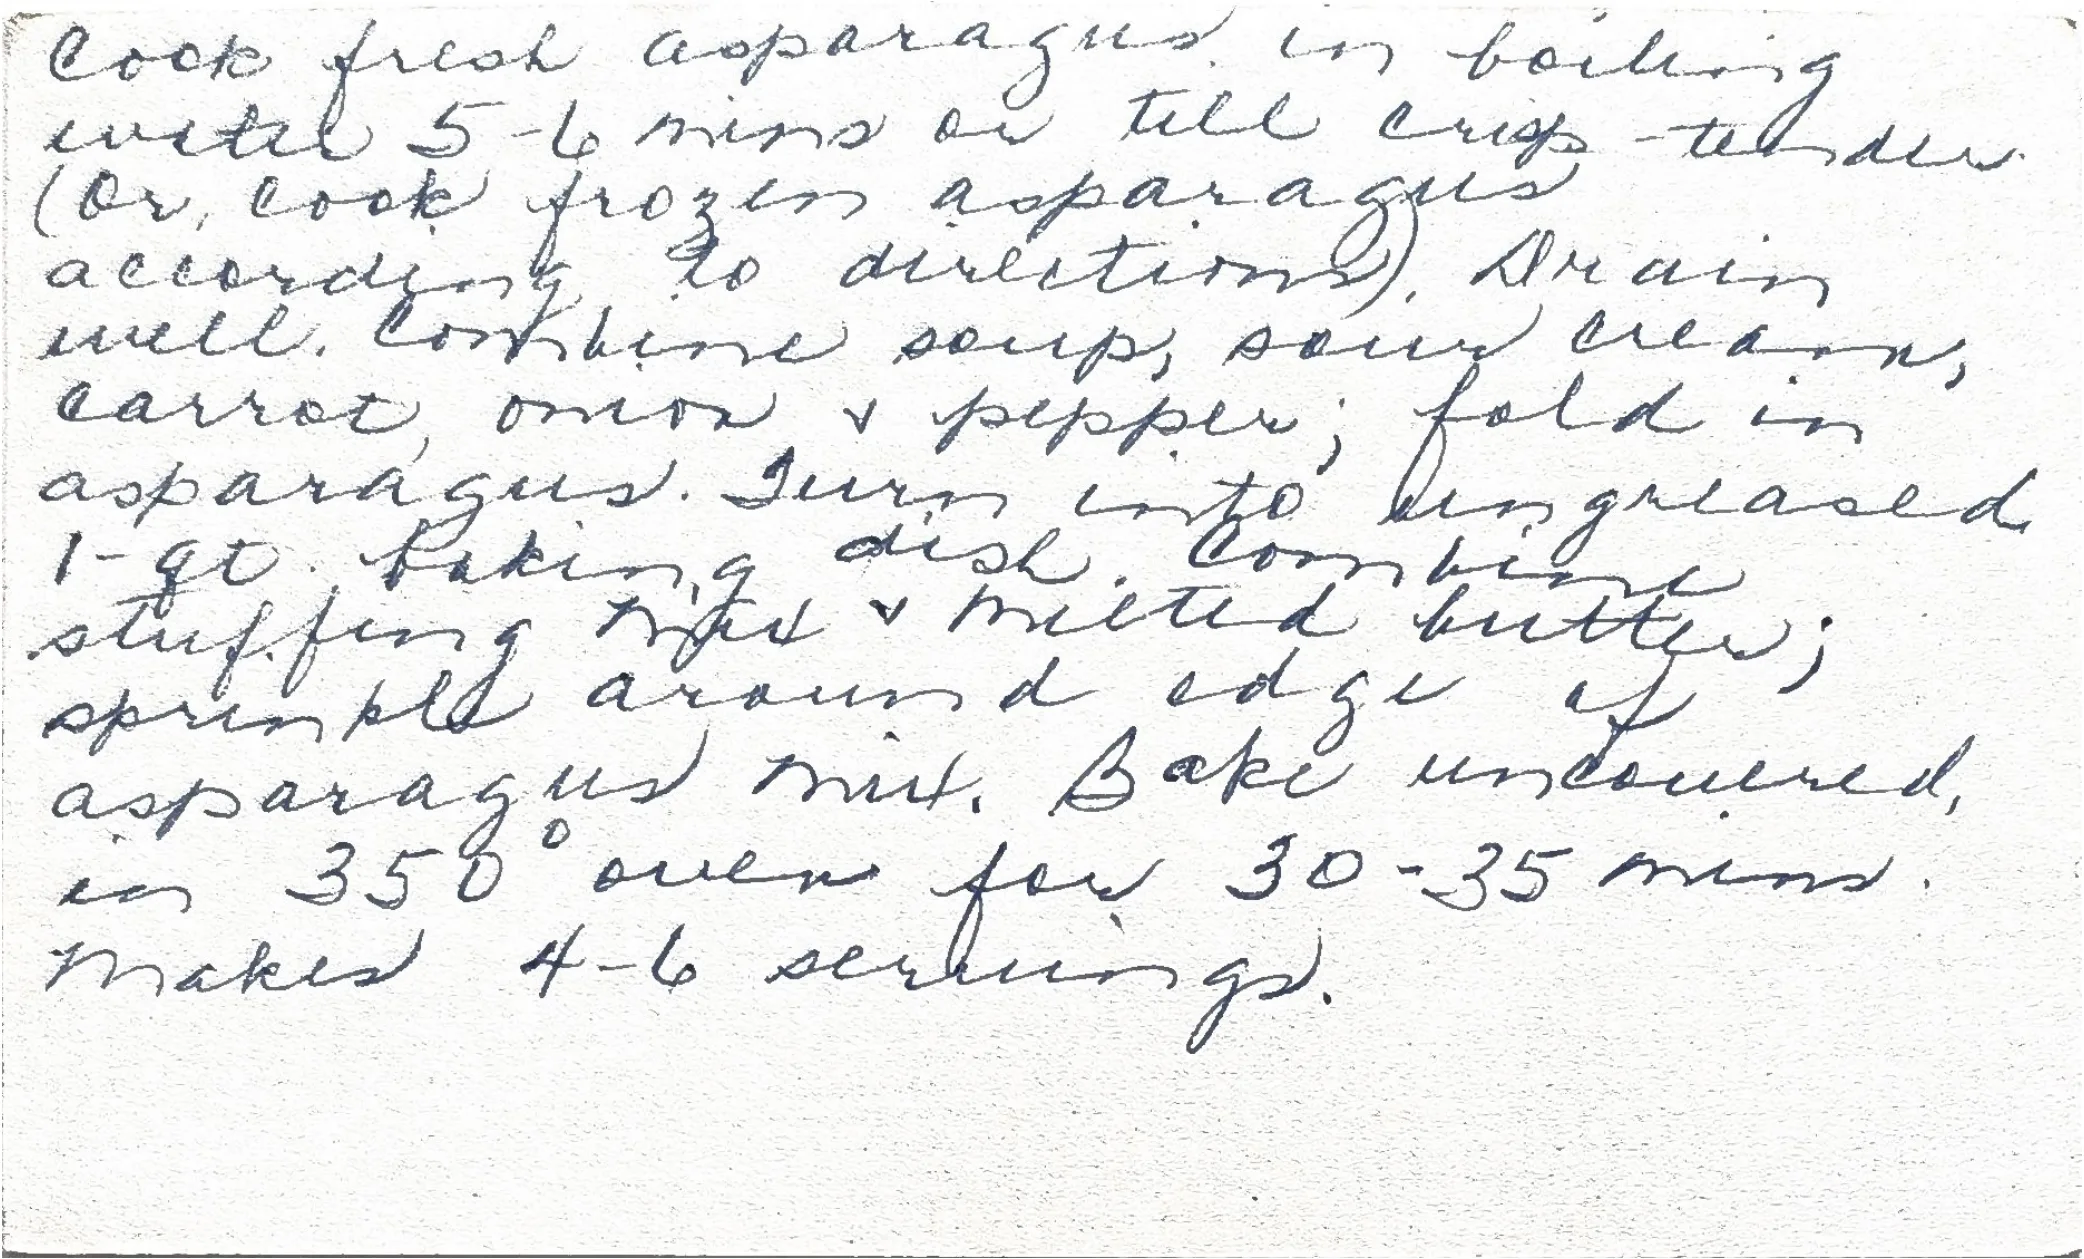 Cook fresh asparagus in boiling
water 5-6 mins or till crisp-tender.
(Or, cook frozen asparagus
according to directions). Drain
well. Combine soup, sour cream,
carrot, onion & pepper; fold in
asparagus. Turn into ungreased
1-qt. baking dish. Combine
stuffing mix & melted butter;
sprinkle around edge of
asparagus mix. Bake uncovered,
in 350° oven for 30-35 mins.
Makes 4-6 servings.